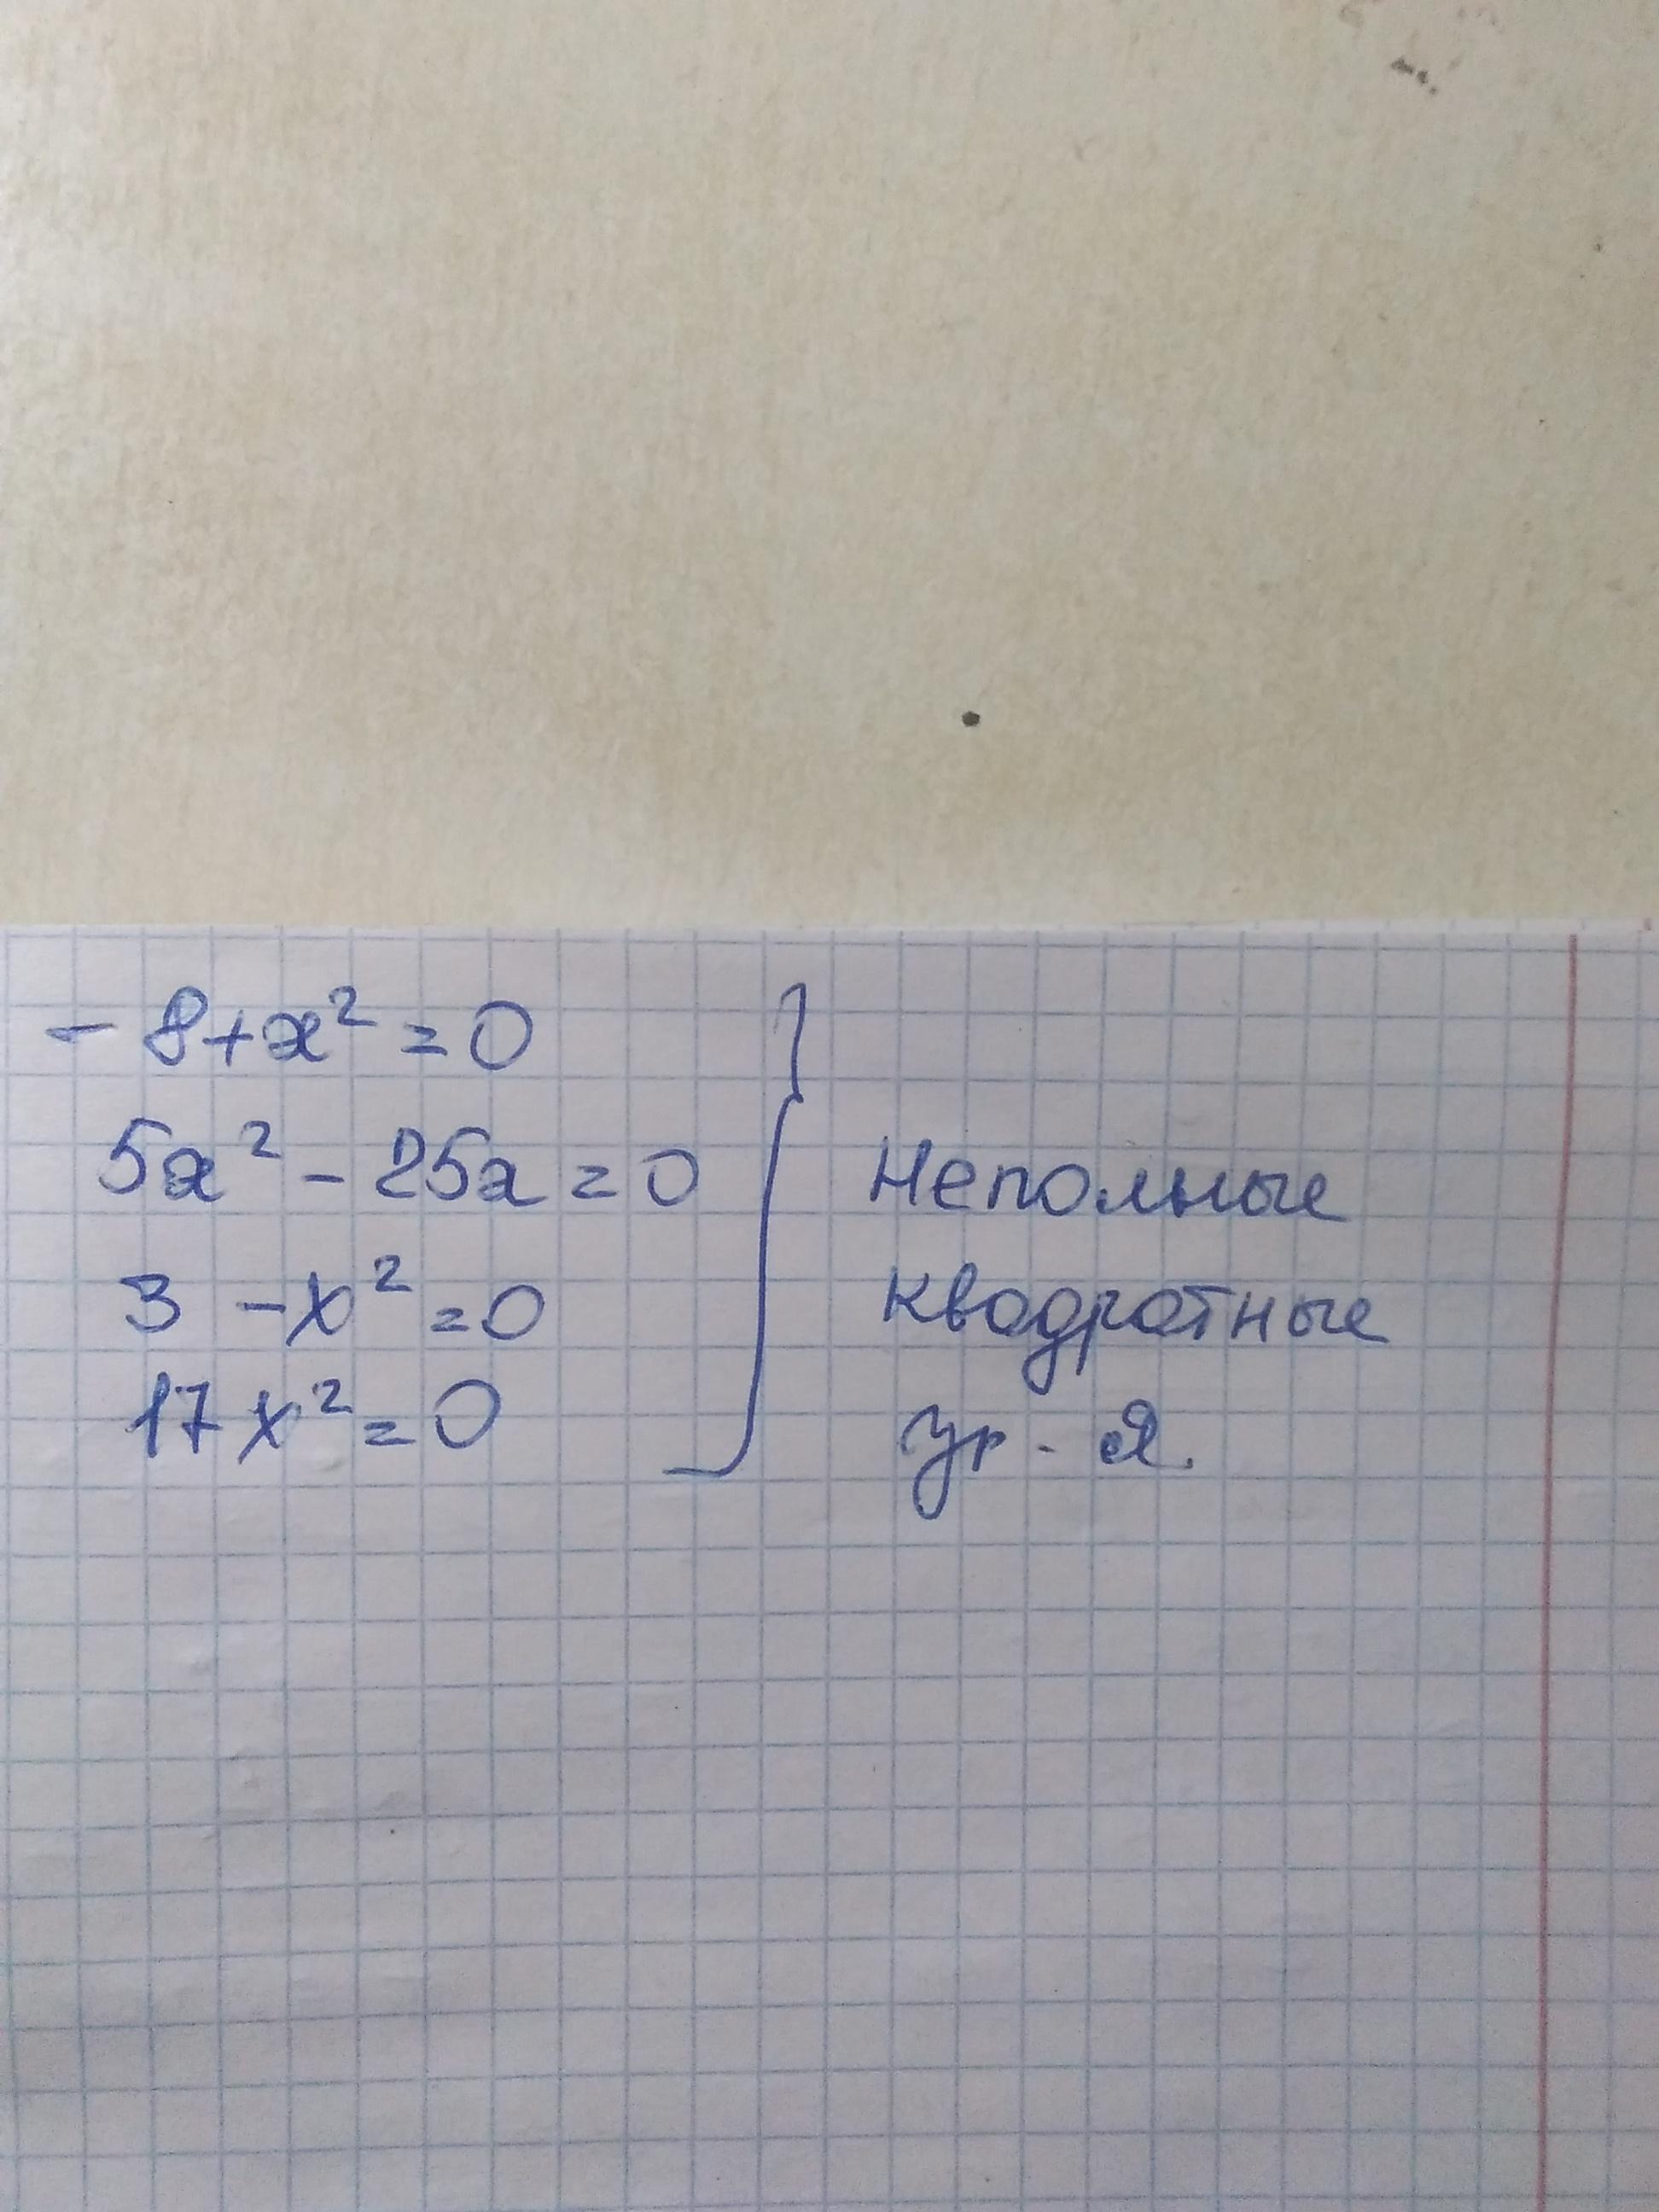 - 8+x² = 0
5x² - 25x = 0
3 - x² = 0
17x² = 0
Неполные
квадратные
ур - я.